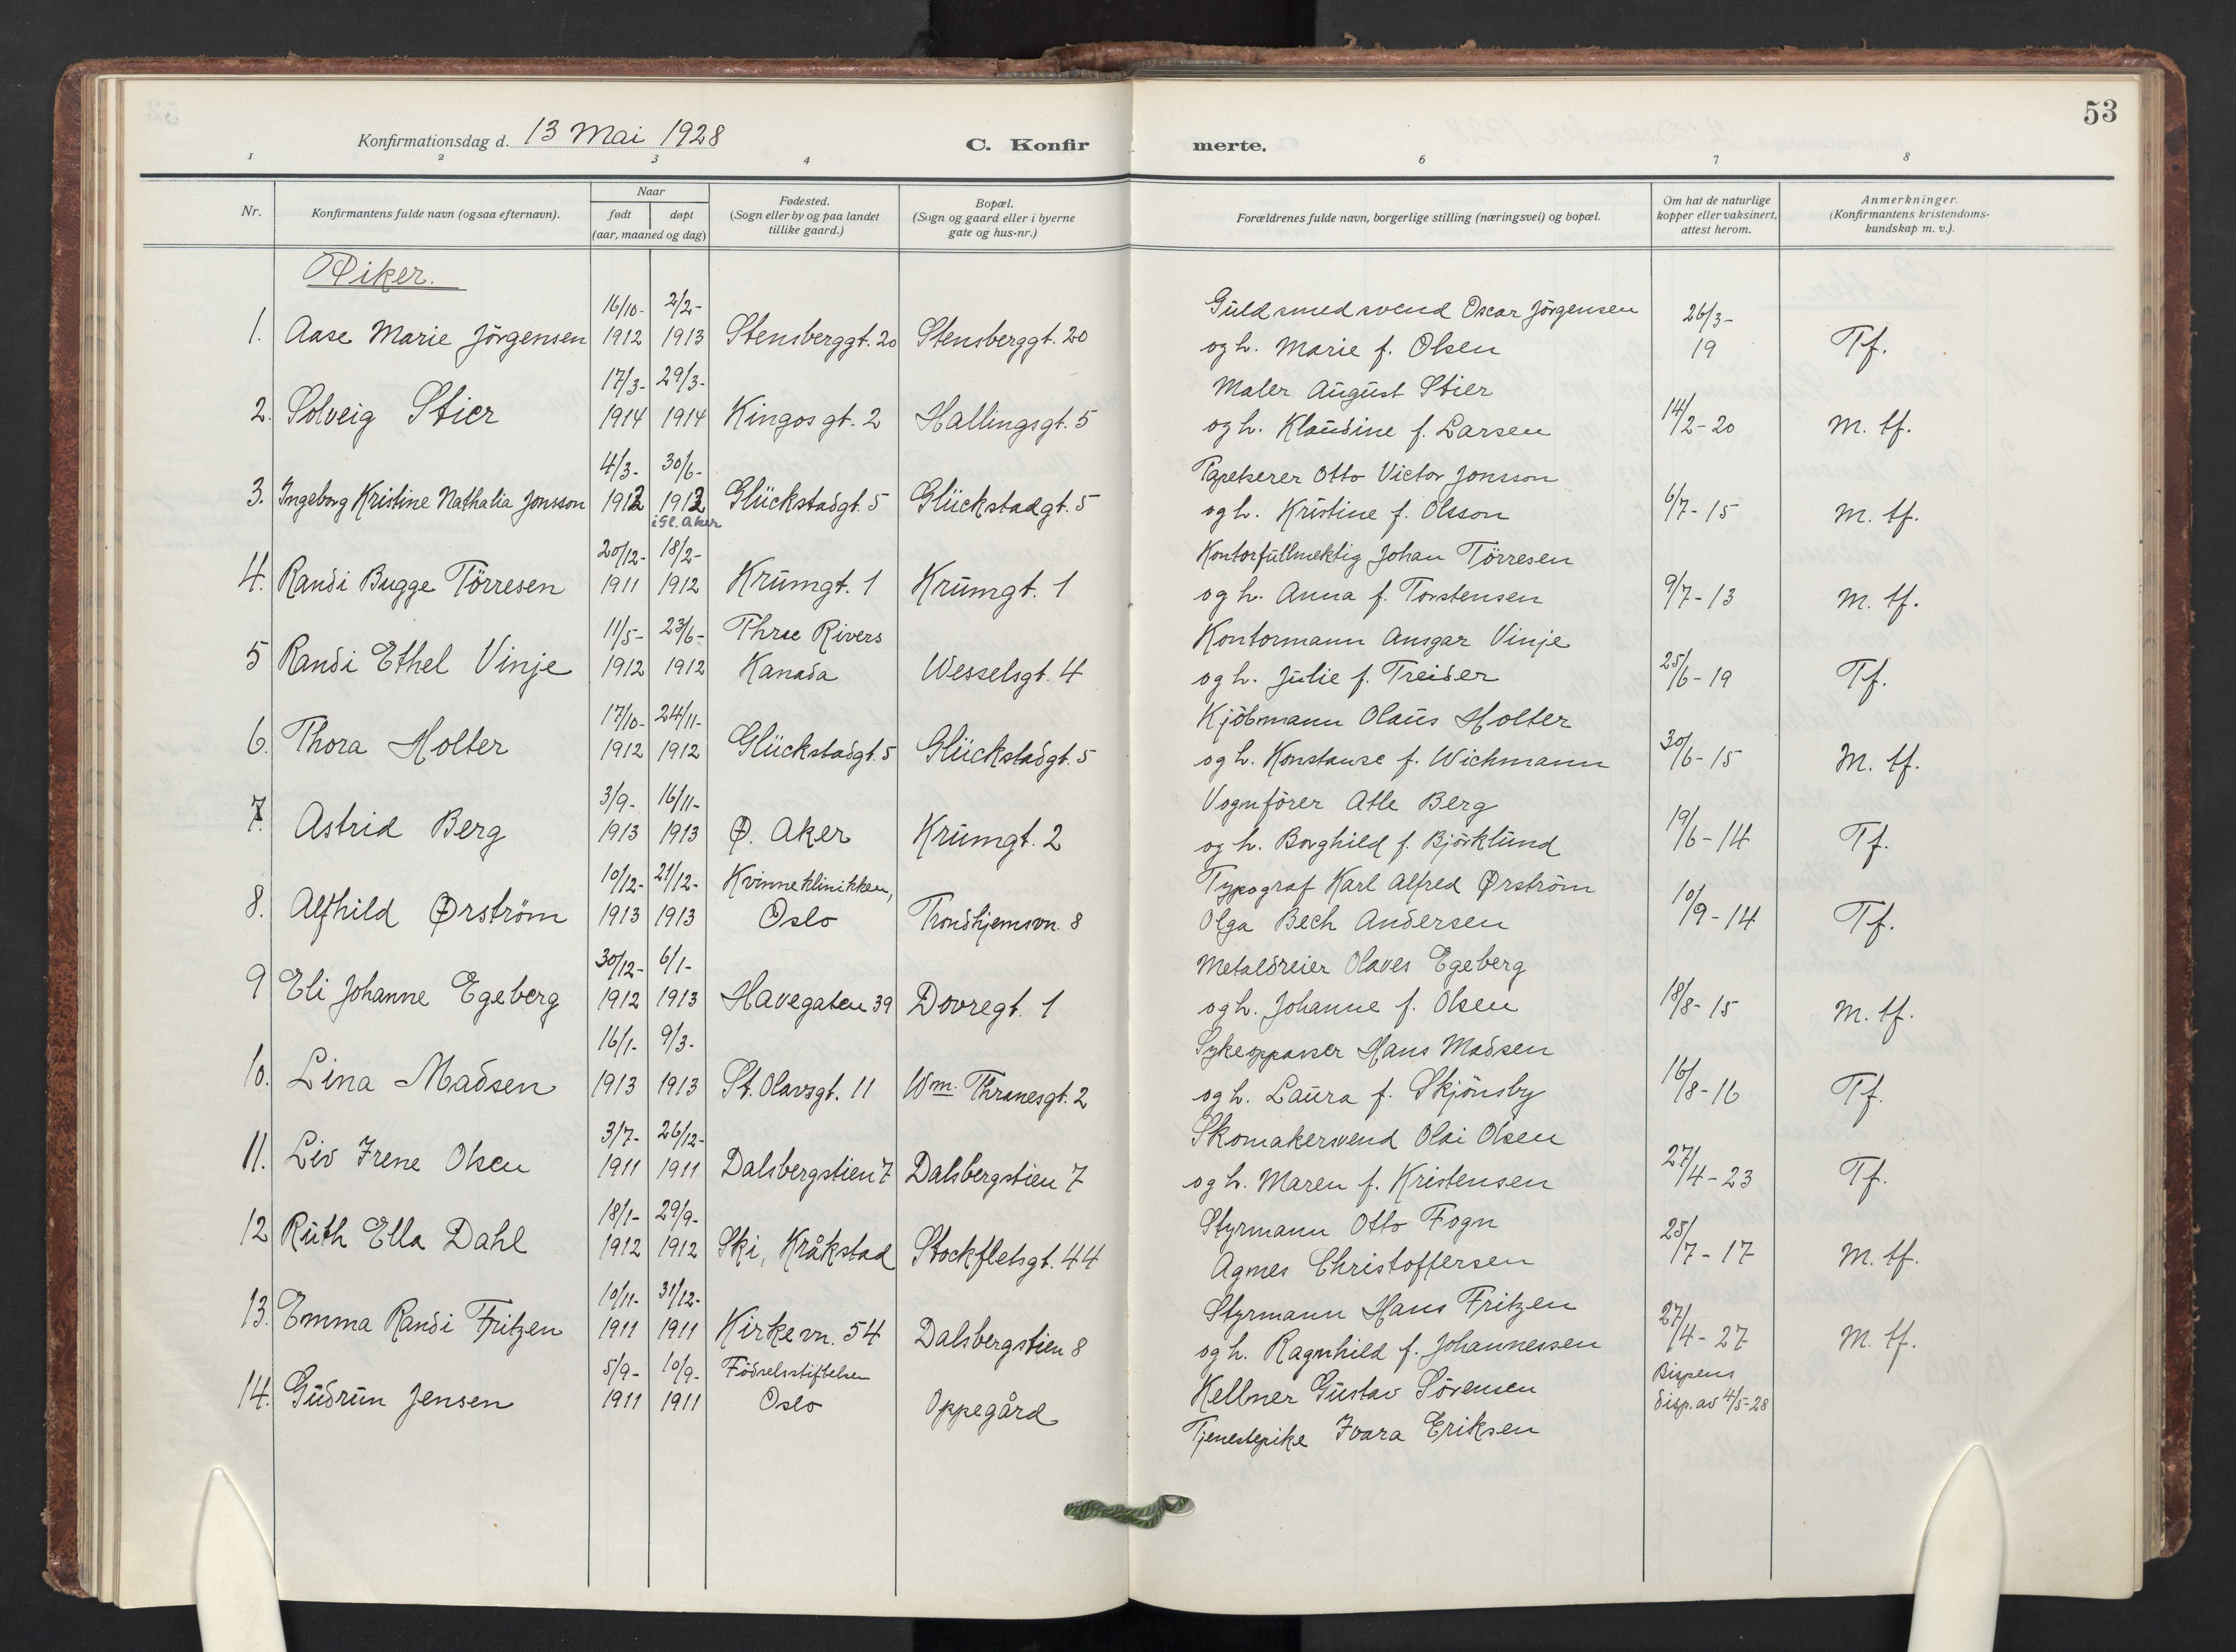 53
Konfirmationsdag d. 13 Mai 1928 C. Konfirmerte.
1 2 3 4 6 7 8
Nr. Konfirmantens fulde navn (ogsaa efternavn). Naar født døpt (aar, maaned og dag) Fødested. (Sogn eller by og paa landet tillike gaard.) Bopæl. (Sogn og gaard eller i byerne gate og hus-nr.) Forældrenes fulde navn, borgerlige stilling (næringsvei) og bopæl. Om hat de naturlige kopper eller vaksinert, attest herom. Anmerkninger. (Konfirmantens kristendoms-kundskap m. v.).
Piker.
16/10- 2/2- Guldsmedsvend Oscar Jörgensen 26/3-
1. Aase Marie Jörgensen 1912 1913 Stensberggt. 20 Stensberggt. 20 og h. Marie f. Olsen 19 Tf.
17/3- 29/3- Maler August Stier
2. Solveig Stier 1914 1914 Kingosgt. 2 Hallingsgt. 5 og h. Klaudine f. Larsen 14/2-20 M. tf.
4/3- 30/6- Tapetserer Otto Victor Jonsson
3. Ingeborg Kristine Nathalia Jonsson 1912 1912 Glückstadgt. 5 Glückstadgt. 5 og h. Kristine f. Olsson 6/7-15 M. tf.
i Gl. Aker
20/12- 18/2- Kontorfullmektig Johan Törresen
4. Randi Bugge Törresen 1911 1912 Krumgt. 1 Krumgt. 1 og h. Anna f. Torstensen 9/7-13 M. tf.
11/5- 23/6- Three Rivers Kontormann Ansgar Vinje
5 Randi Ethel Vinje 1912 1912 Kanada Wesselsgt. 4 og h. Julie f. Treider 25/6-19 Tf.
17/10- 24/11- Kjöbmann Olaus Holter
6. Thora Holter 1912 1912 Glückstadgt. 5 Glückstadgt. 5 og h. Konstanse f. Wichmann 30/6-15 M. tf.
3/9- 16/11- Vognförer Atle Berg
7. Astrid Berg 1913 1913 Ø. Aker Krumgt. 2 og h. Borghild f. Björklund 19/6-14 Tf.
10/12- 21/12- Kvinneklinikken, Typograf Karl Alfred Ørström
8. Alfhild Ørström 1913 1913 Oslo Trondhjemsvn. 8 Olga Bech Andersen 10/9-14 Tf.
30/12- 6/1- Metaldreier Olaves Egeberg
9 Eli Johanne Egeberg 1912 1913 Havegaten 39 Dovregt. 1 og h. Johanne f. Olsen 18/8-15 M. tf.
16/1- 9/3- Sykeoppasser Hans Madsen
10. Lina Madsen 1913 1913 St. Olavsgt. 11 Wm. Thranesgt. 2 og h. Laura f. Skjönsby 16/8-16 Tf.
3/7- 26/12- Skomakersvend Olai Olsen
11. Liv Irene Olsen 1911 1911 Dalsbergstien 7 Dalsbergstien 7 og h. Maren f. Kristensen 27/4-23 Tf.
18/1- 29/9- Styrmann Otto Fogn
12 Ruth Ella Dahl 1912 1912 Ski, Kråkstad Stockfletsgt. 44 Agnes Christoffersen 25/7-17 M. tf.
10/11- 31/12- Styrmann Hans Fritzen
13. Emma Randi Fritzen 1911 1911 Kirkevn. 54 Dalsbergstien 8 og h. Ragnhild f. Johannessen 27/4-27 M. tf.
5/9- 10/9- Födselsstiftelsen Kellner Gustav Sörensen Bispens
14. Gudrun Jensen 1911 1911 Oslo Oppegård Tjenestepike Ivara Eriksen disp. av 4/5-28